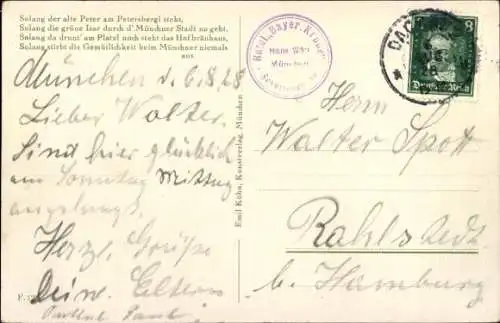 Solang der alte Peter am Petersbergl steht,
Solang die grüne Isar durch d'Münchner Stadt no geht,
Solang da drunt' am Platzl noch steht das Hofbräuhaus,
Solang stirbt die Gemütlichkeit beim Münchner niemals
aus.
München d. 6.8.28
Lieber Walter.
Sind hier glücklich
am Sonntag Mittag
angelangt.
Herzl. Grüße
Deine Eltern
Emil Köhn, Kunstverlag, München
Hotel „Bayer.
Hans
München
DAC
8
Deutsches Reich
Herrn
Walter Spott
Rahlstedt
b. Hamburg